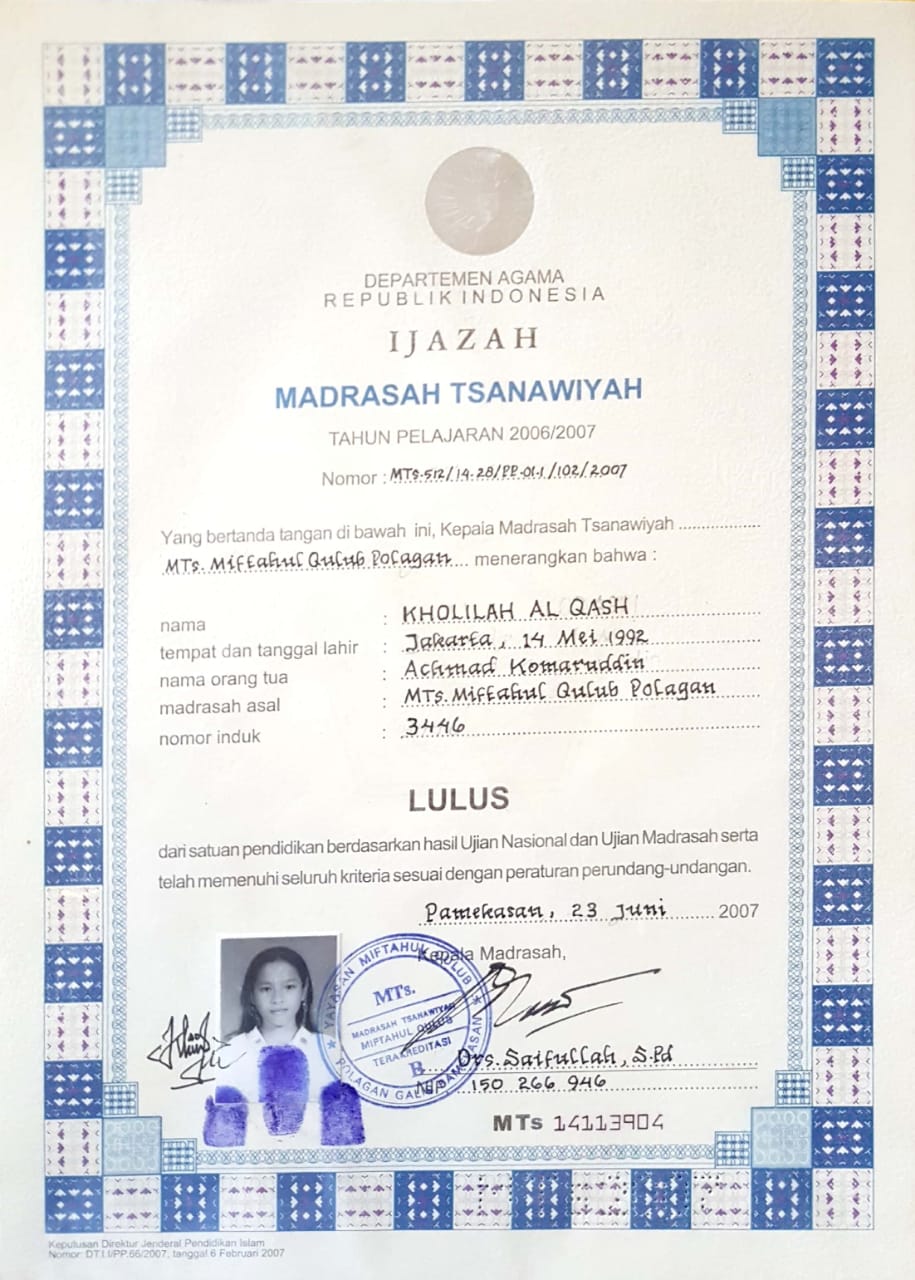 DEPARTEMEN AGAMA
REPUBLIK INDONESIA
IJAZAH
MADRASAH TSANAWIYAH
TAHUN PELAJARAN 2006/2007
Nomor : MTs.512/14.28/PP.01.1/102/2007
Yang bertanda tangan di bawah ini, Kepala Madrasah Tsanawiyah .................
MTs. Miftahul Qulub Polagan.... menerangkan bahwa :
nama : KHOLILAH AL QASH
tempat dan tanggal lahir : Jakarta, 14 Mei 1992
nama orang tua : Achmad Komaruddin
madrasah asal : MTs. Miftahul Qulub Polagan
nomor induk : 3446
LULUS
dari satuan pendidikan berdasarkan hasil Ujian Nasional dan Ujian Madrasah serta
telah memenuhi seluruh kriteria sesuai dengan peraturan perundang-undangan.
Pamekasan, 23 Juni ........ 2007
Kepala Madrasah,
YAYASAN MIFTAHUL QULUB
MTs.
MADRASAH TSANAWIYAH
MIFTAHUL QULUB
TERAKREDITASI
B
POLAGAN GALIS PAMEKASAN
Drs. Saifullah, S.Pd
NIP. 150 266 946
MTs 14113904
Keputusan Direktur Jenderal Pendidikan Islam
Nomor: DT.I.I/PP.66/2007, tanggal 6 Februari 2007